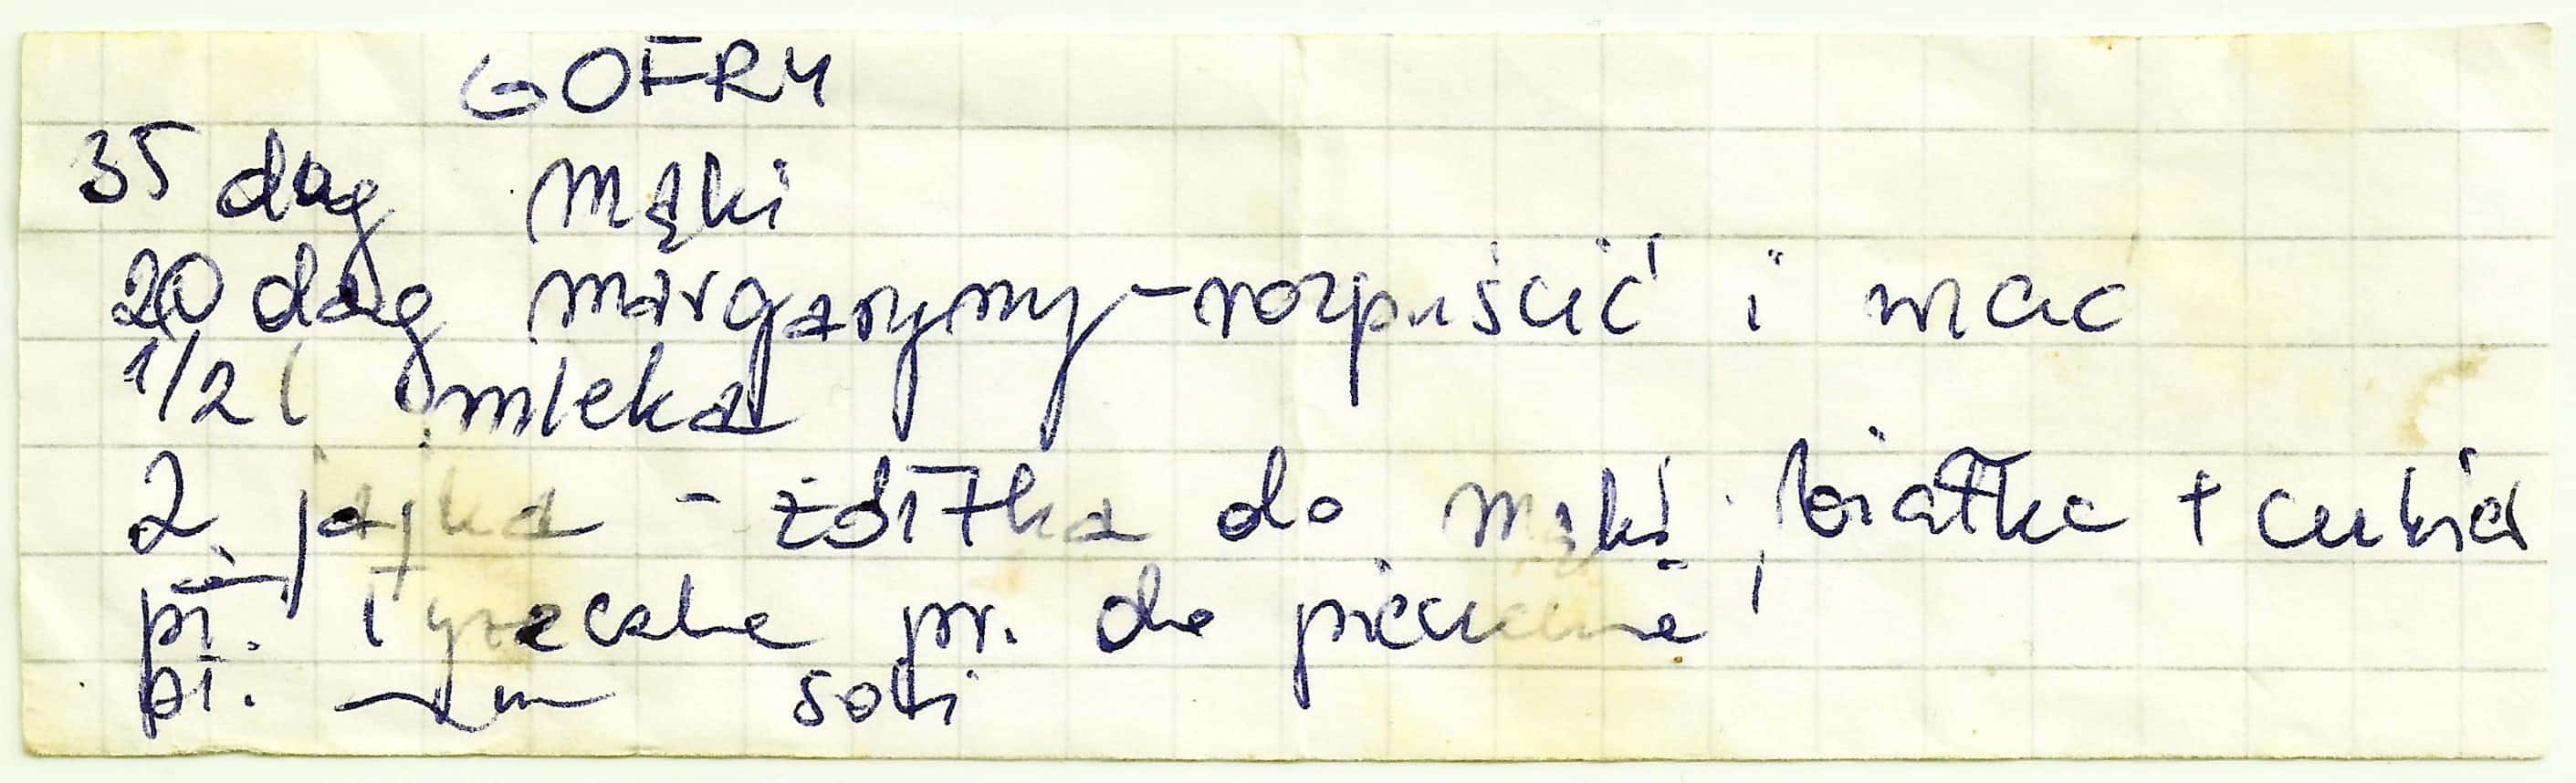 GOFRY
35 dag mąki
20 dag margaryny - rozpuścić i wlać
1/2 l mleka
2 jajka - żółtka do mąki, białka + cukier
pł. łyżeczka pr. do pieczenia
pł. soli